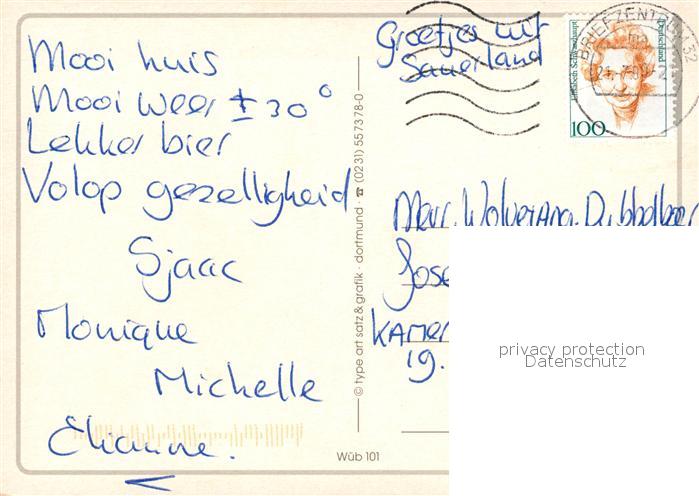 Mooi huis
Mooi weer ± 30°
Lekker bier
Volop gezelligheid
Sjaac
Monique
Michelle
Elianne.
Groetjes uit
Sauerland
BRIEFZENTRUM 32
Elisabeth Schwarzhaupt
Deutschland
100
© type art satz & grafik · dortmund · ☎ (0231) 557378-0
Mevr.
Jose
Kamer
19.
privacy protection
Datenschutz
Wüb 101